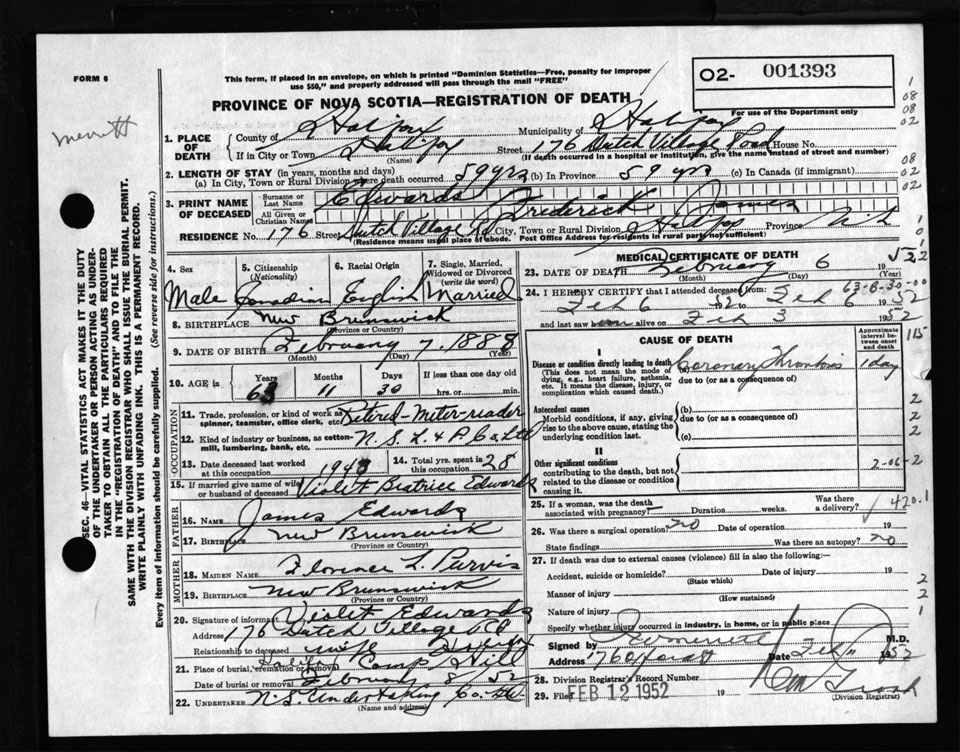 FORM 6
This form, if placed in an envelope, on which is printed "Dominion Statistics—Free, penalty for improper
use $50," and properly addressed will pass through the mail "FREE"
O2- 001393
For use of the Department only
PROVINCE OF NOVA SCOTIA—REGISTRATION OF DEATH
merritt
1. PLACE OF DEATH County of Halifax Municipality of Halifax
If in City or Town Halifax Street 176 Dutch Village Road House No.
(Name) (If death occurred in a hospital or institution, give the name instead of street and number)
2. LENGTH OF STAY (in years, months and days)
(a) In City, Town or Rural Division where death occurred 59 yrs (b) In Province 59 yrs (c) In Canada (if immigrant)
3. PRINT NAME OF DECEASED Surname or Last Name Edwards
All Given or Christian Names Frederick James
RESIDENCE No. 176 Street Dutch Village Rd City, Town or Rural Division Halifax Province N.S.
(Residence means usual place of abode. Post Office Address for residents in rural parts not sufficient)
4. Sex Male
5. Citizenship (Nationality) Canadian
6. Racial Origin English
7. Single, Married, Widowed or Divorced (write the word) Married
8. BIRTHPLACE New Brunswick
(Province or Country)
9. DATE OF BIRTH February 7, 1888
(Month) (Day) (Year)
10. AGE in Years 63 Months 11 Days 30 If less than one day old hrs. or min.
OCCUPATION
11. Trade, profession, or kind of work as spinner, teamster, office clerk, etc. Retired-Meter-reader
12. Kind of industry or business, as cotton-mill, lumbering, bank, etc. N.S.L. & P. Co. Ltd
13. Date deceased last worked at this occupation 1943
14. Total yrs. spent in this occupation 28
15. If married give name of wife or husband of deceased Violet Beatrice Edwards
FATHER
16. NAME James Edwards
17. BIRTHPLACE New Brunswick
(Province or Country)
MOTHER
18. MAIDEN NAME Florence L. Purvis
19. BIRTHPLACE New Brunswick
(Province or Country)
20. Signature of informant Violet Edwards
Address 176 Dutch Village Rd
Relationship to deceased wife Halifax
21. Place of burial, cremation or removal Halifax Camp Hill
Date of burial or removal February 8/52
22. UNDERTAKER N.S. Undertaking Co. Ltd.
(Name and address)
MEDICAL CERTIFICATE OF DEATH
23. DATE OF DEATH February 6 1952
(Month) (Day) (Year)
63-8-30-00
24. I HEREBY CERTIFY that I attended deceased from:
Feb 6 1952 to Feb 6 1952
and last saw him alive on Feb 3 1952
CAUSE OF DEATH
Approximate interval between onset and death
I
Disease or condition directly leading to death
(This does not mean the mode of dying, e.g., heart failure, asthenia, etc. It means the disease, injury, or complication which caused death.)
Coronary Thrombosis 1 day
due to (or as a consequence of)
Antecedent causes
Morbid conditions, if any, giving rise to the above cause, stating the underlying condition last.
(b)
due to (or as a consequence of)
(c)
II
Other significant conditions
contributing to the death, but not related to the disease or condition causing it.
2-06-2
25. If a woman, was the death associated with pregnancy? Duration weeks. Was there a delivery?
420.1
26. Was there a surgical operation? no Date of operation 19
State findings Was there an autopsy? no
27. If death was due to external causes (violence) fill in also the following:
Accident, suicide or homicide? Date of injury 19
(State which)
Manner of injury
(How sustained)
Nature of injury
Specify whether injury occurred in industry, in home, or in public place
Signed by Merritt M.D.
Address 176 Oxford Date Feb 11 1952
28. Division Registrar's Record Number
29. Filed FEB 12 1952
(Division Registrar)
SEC. 46—VITAL STATISTICS ACT MAKES IT THE DUTY
OF THE UNDERTAKER OR PERSON ACTING AS UNDER-
TAKER TO OBTAIN ALL THE PARTICULARS REQUIRED
IN THE "REGISTRATION OF DEATH" AND TO FILE THE
SAME WITH THE DIVISION REGISTRAR WHO SHALL ISSUE THE BURIAL PERMIT.
WRITE PLAINLY WITH UNFADING INK. THIS IS A PERMANENT RECORD.
Every item of information should be carefully supplied. (See reverse side for instructions.)